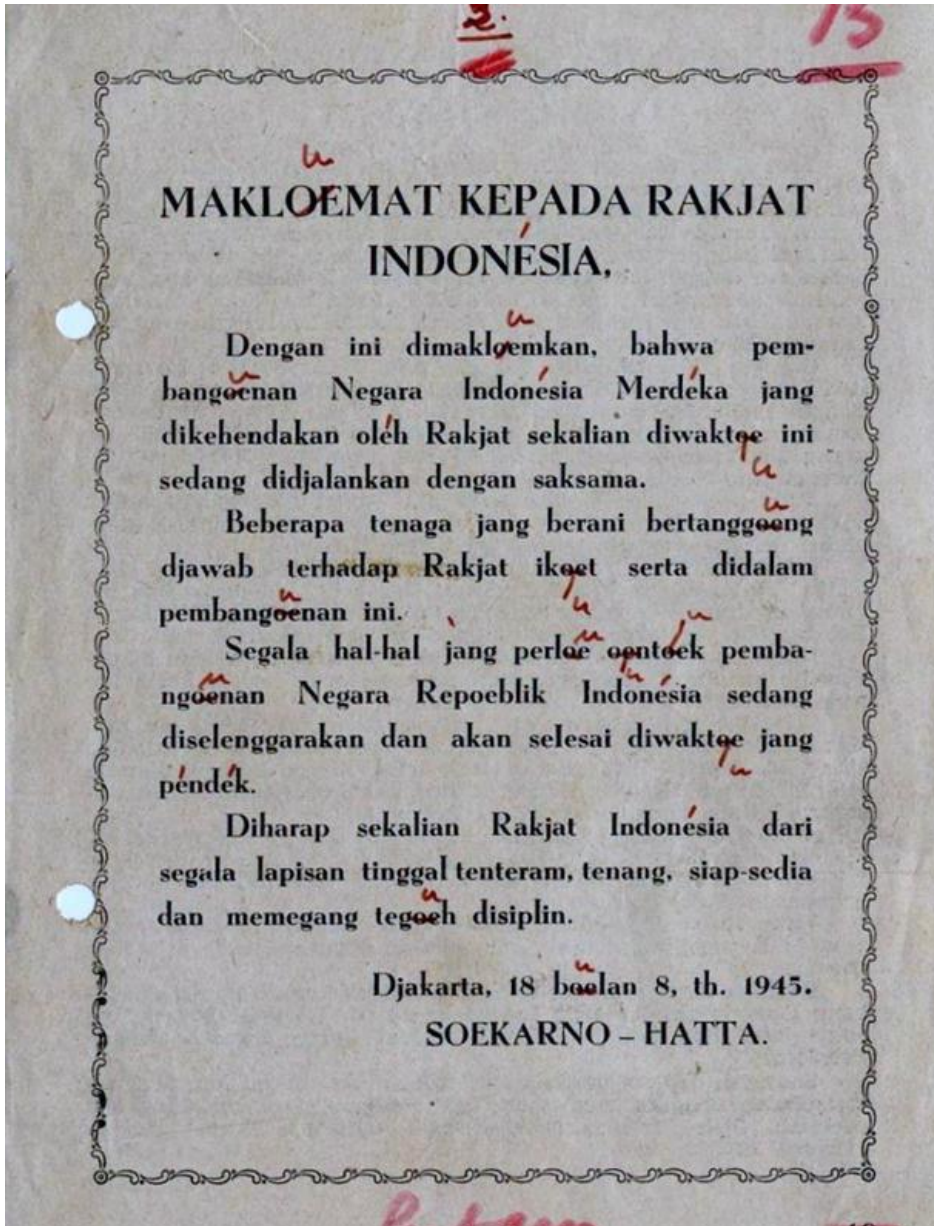 2.
13
MAKLOEMAT KEPADA RAKJAT
INDONÉSIA,
Dengan ini dimakloemkan, bahwa pem-
bangoenan Negara Indonésia Merdéka jang
dikehendakan oléh Rakjat sekalian diwaktoe ini
sedang didjalankan dengan saksama.
Beberapa tenaga jang berani bertanggoeng
djawab terhadap Rakjat ikoet serta didalam
pembangoenan ini.
Segala hal-hal jang perloe oentoek pemba-
ngoenan Negara Repoeblik Indonésia sedang
diselenggarakan dan akan selesai diwaktoe jang
péndék.
Diharap sekalian Rakjat Indonésia dari
segala lapisan tinggal tenteram, tenang, siap-sedia
dan memegang tegoeh disiplin.
Djakarta, 18 boelan 8, th. 1945.
SOEKARNO – HATTA.